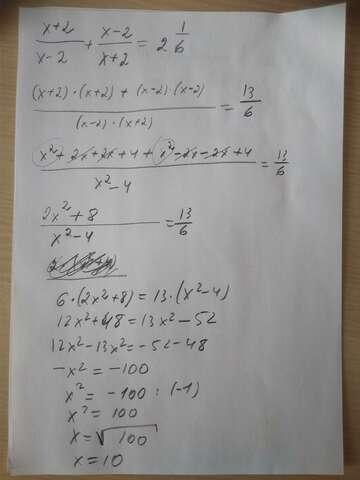 (x+2)/(x-2) + (x-2)/(x+2) = 2 1/6
((x+2)·(x+2) + (x-2)·(x-2))/((x-2)·(x+2)) = 13/6
(x²+2x+2x+4+x²-2x-2x+4)/(x²-4) = 13/6
(2x²+8)/(x²-4) = 13/6
6·(2x²+8)=13·(x²-4)
12x²+48=13x²-52
12x²-13x²=-52-48
-x²=-100
x²=-100:(-1)
x²=100
x=√100
x=10